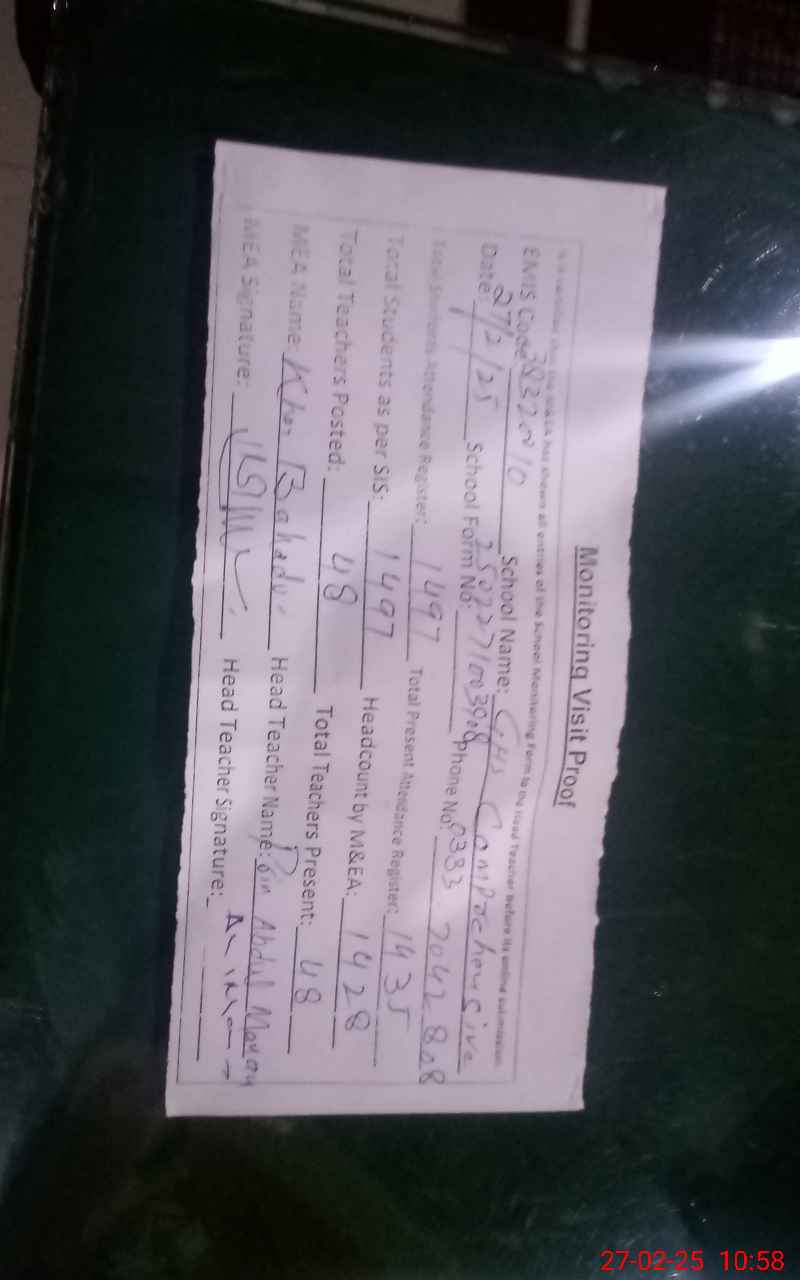 Monitoring Visit Proof
It is certified that the MEA has shown all entries of the School Monitoring Form to the Head Teacher before its online submission.
EMIS Code: 38320010 School Name: GHS Comprehensive
Date: 27/2/25 School Form No: 2502271003908 Phone No: 0333 7042808
Total Students Attendance Register: 1497 Total Present Attendance Register: 1435
Total Students as per SIS: 1497 Headcount by M&EA: 1428
Total Teachers Posted: 48 Total Teachers Present: 48
MEA Name: Khan Bahadur Head Teacher Name: Abdul
MEA Signature: Head Teacher Signature:
27-02-25 10:58